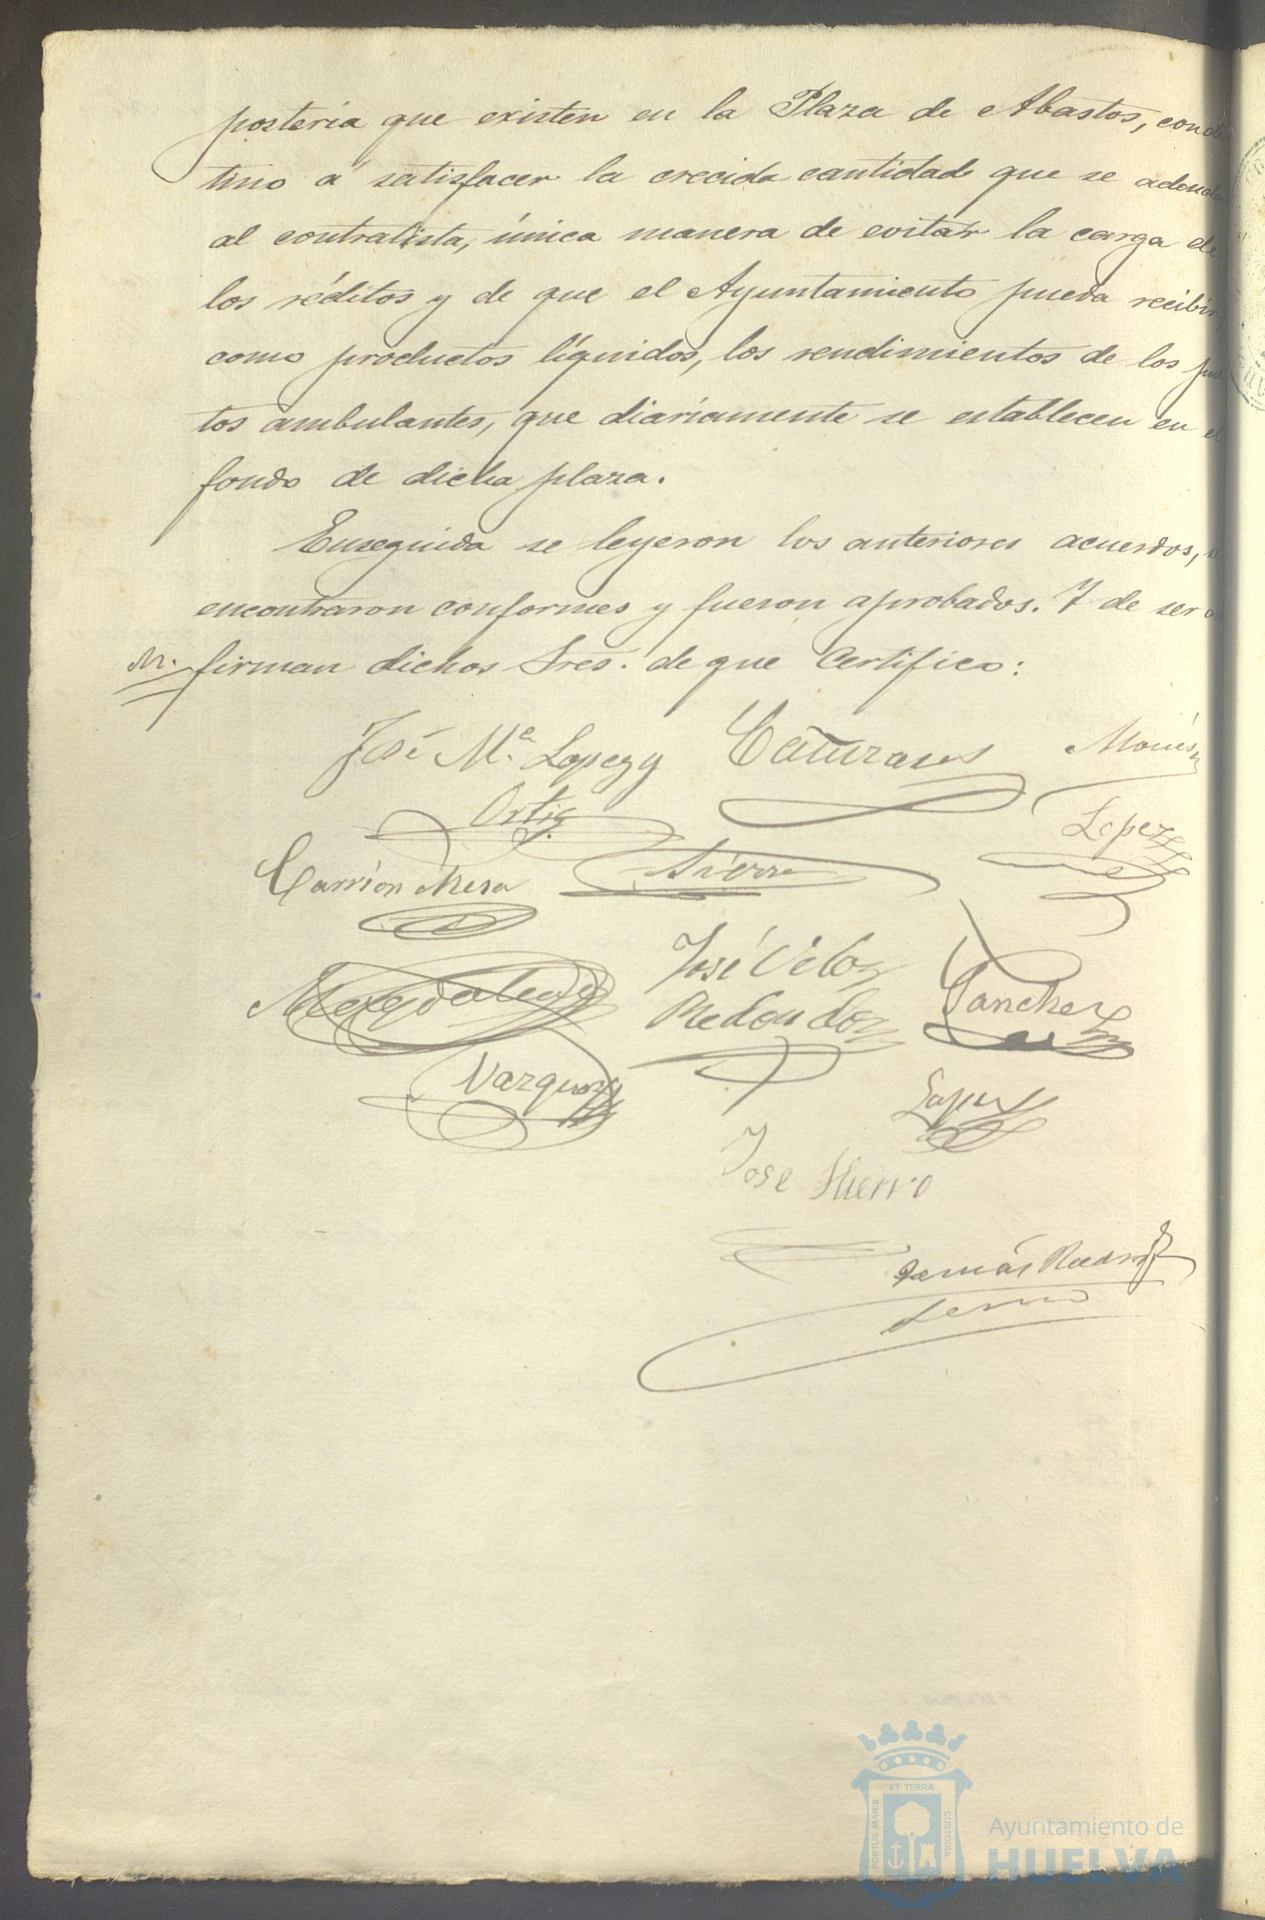 postería que existen en la Plaza de Abastos, con de
tino á satisfacer la crecida cantidad que se adeuda
al contratista, única manera de evitar la carga de
los réditos y de que el Ayuntamiento pueda recibir,
como productos líquidos, los rendimientos de los pue
tos ambulantes, que diariamente se establecen en el
fondo de dicha plaza.
Enseguida se leyeron los anteriores acuerdos, se
encontraron conformes y fueron aprobados. Y de ser a
M. firman dichos Sres. de que Certifico:
José Mª Lopez y
Ortiz
Moisés
Lopez
Carrion Mesa
Sierra
José Veloz
Redondo
Sanchez
Vazquez
Lopez
José Hierro
Tomás Rodrig
ET TERRÆ
PORTUS MARIS
CUSTODIA
Ayuntamiento de
HUELVA